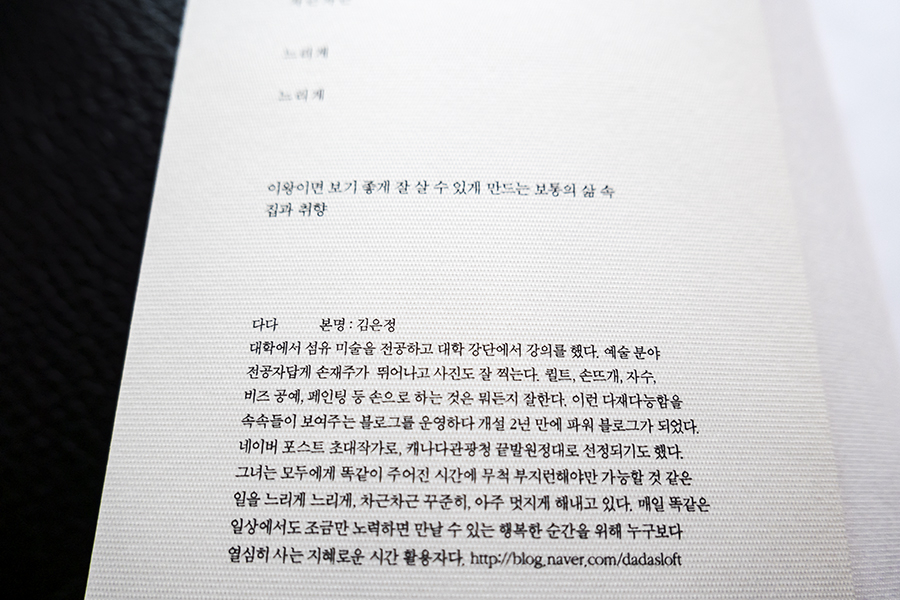 느리게
느리게
이왕이면 보기 좋게 잘 살 수 있게 만드는 보통의 삶 속
집과 취향
다다 본명 : 김은정
대학에서 섬유 미술을 전공하고 대학 강단에서 강의를 했다. 예술 분야
전공자답게 손재주가 뛰어나고 사진도 잘 찍는다. 퀼트, 손뜨개, 자수,
비즈 공예, 페인팅 등 손으로 하는 것은 뭐든지 잘한다. 이런 다재다능함을
속속들이 보여주는 블로그를 운영하다 개설 2년 만에 파워 블로그가 되었다.
네이버 포스트 초대작가로, 캐나다관광청 끝발원정대로 선정되기도 했다.
그녀는 모두에게 똑같이 주어진 시간에 무척 부지런해야만 가능할 것 같은
일을 느리게 느리게, 차근차근 꾸준히, 아주 멋지게 해내고 있다. 매일 똑같은
일상에서도 조금만 노력하면 만날 수 있는 행복한 순간을 위해 누구보다
열심히 사는 지혜로운 시간 활용자다. http://blog.naver.com/dadasloft